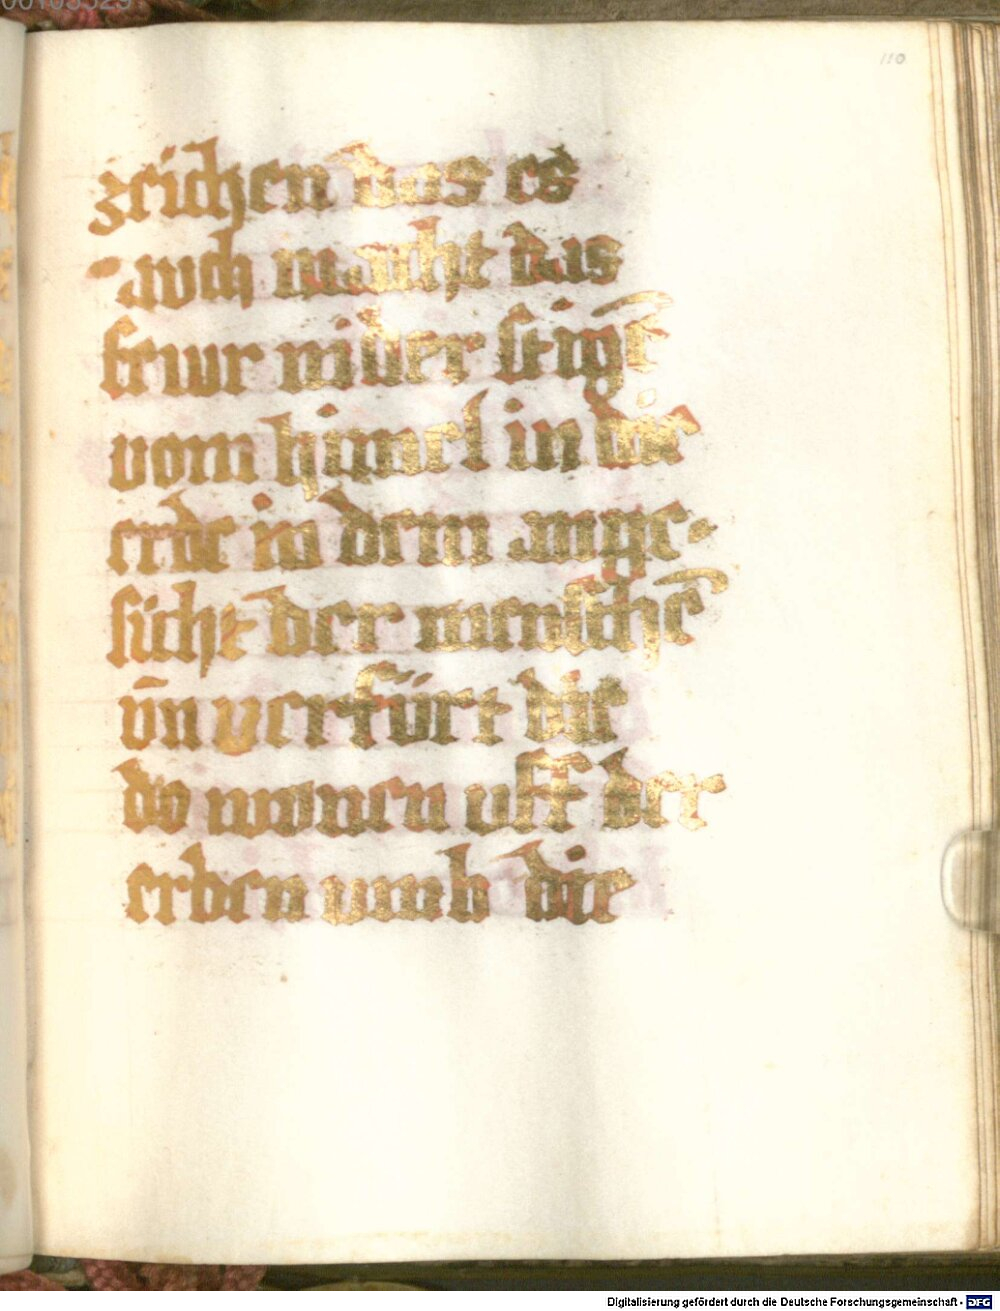 00103529
110
zeichen das es
auch macht das
fewr nider stigt
vom himel in die
erde in dem ange-
sicht der mensche̅
vn̅ verfürt die
do wonen uff der
erden umb die
Digitalisierung gefördert durch die Deutsche Forschungsgemeinschaft - DFG